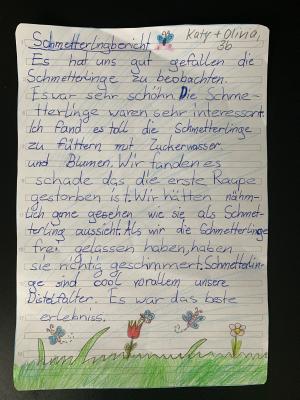 Schmetterlingbericht Katy + Olivia,
3b
Es hat uns gut gefallen die
Schmetterlinge zu beobachten.
Es war sehr schöhn. Die Schme-
tterlinge waren sehr interessant.
Ich fand es toll die Schmetterlinge
zu füttern mit Zuckerwasser
und Blumen. Wir fanden es
schade das die erste Raupe
gestorben ist. Wir hätten nähm-
lich gerne gesehen wie sie als Schmet-
terling aussieht. Als wir die Schmetterlinge
frei gelassen haben, haben
sie richtig geschimmert. Schmetterlin-
ge sind cool vorallem unsere
Distelfalter. Es war das beste
erlebniss.